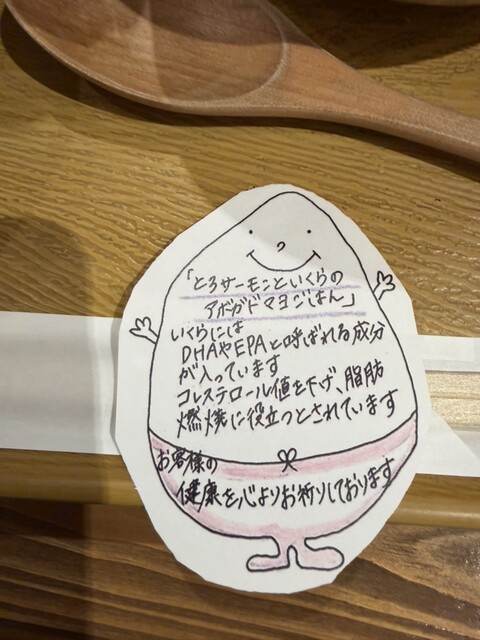 「とろサーモンといくらの
アボガドマヨごはん」
いくらには
DHAやEPAと呼ばれる成分
が入っています
コレステロール値を下げ、脂肪
燃焼に役立つとされています
お客様の
健康を心よりお祈りしております